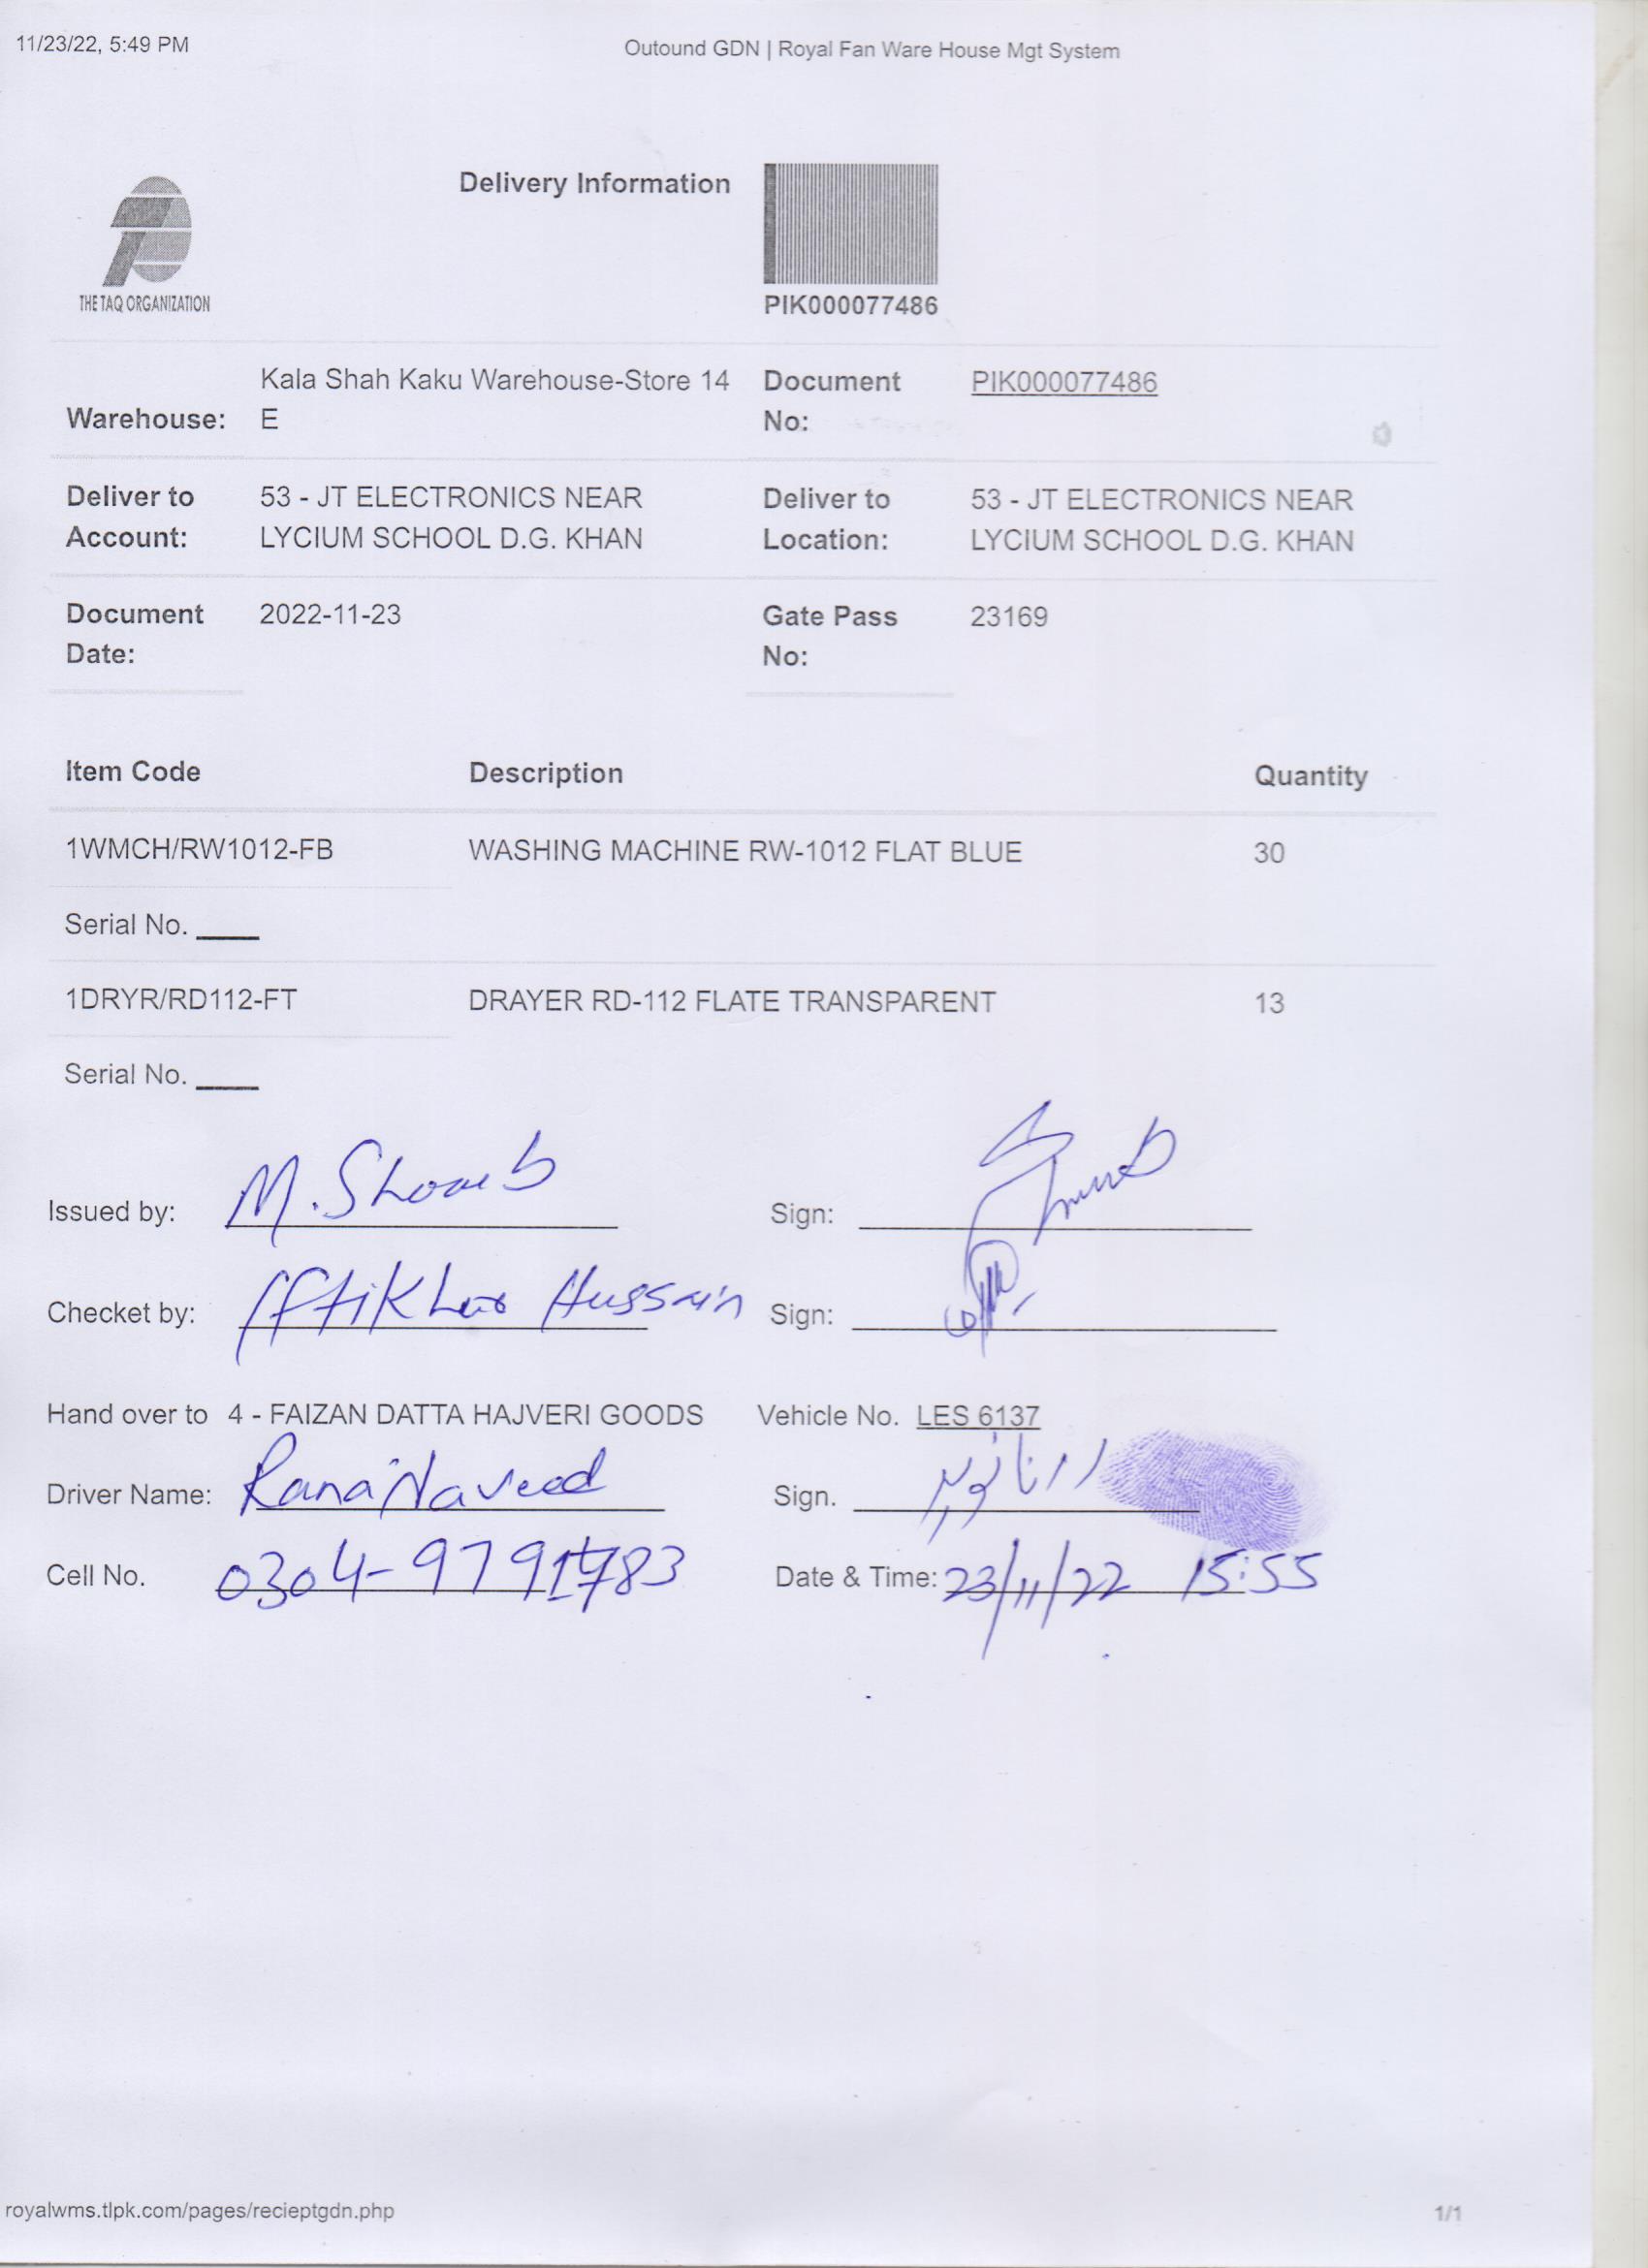 11/23/22, 5:49 PM
Outound GDN | Royal Fan Ware House Mgt System
THE TAQ ORGANIZATION
Delivery Information
PIK000077486
Warehouse: Kala Shah Kaku Warehouse-Store 14 E
Document No: PIK000077486
Deliver to Account: 53 - JT ELECTRONICS NEAR LYCIUM SCHOOL D.G. KHAN
Deliver to Location: 53 - JT ELECTRONICS NEAR LYCIUM SCHOOL D.G. KHAN
Document Date: 2022-11-23
Gate Pass No: 23169
Item Code Description Quantity
1WMCH/RW1012-FB WASHING MACHINE RW-1012 FLAT BLUE 30
Serial No. ____
1DRYR/RD112-FT DRAYER RD-112 FLATE TRANSPARENT 13
Serial No. ____
Issued by: M. Shoaib Sign:
Checket by: Iftikhar Hussain Sign:
Hand over to 4 - FAIZAN DATTA HAJVERI GOODS Vehicle No. LES 6137
Driver Name: Rana Naveed Sign. رانا نوید
Cell No. 0304-979 83 Date & Time: 23/11/22 15:55
royalwms.tlpk.com/pages/recieptgdn.php
1/1